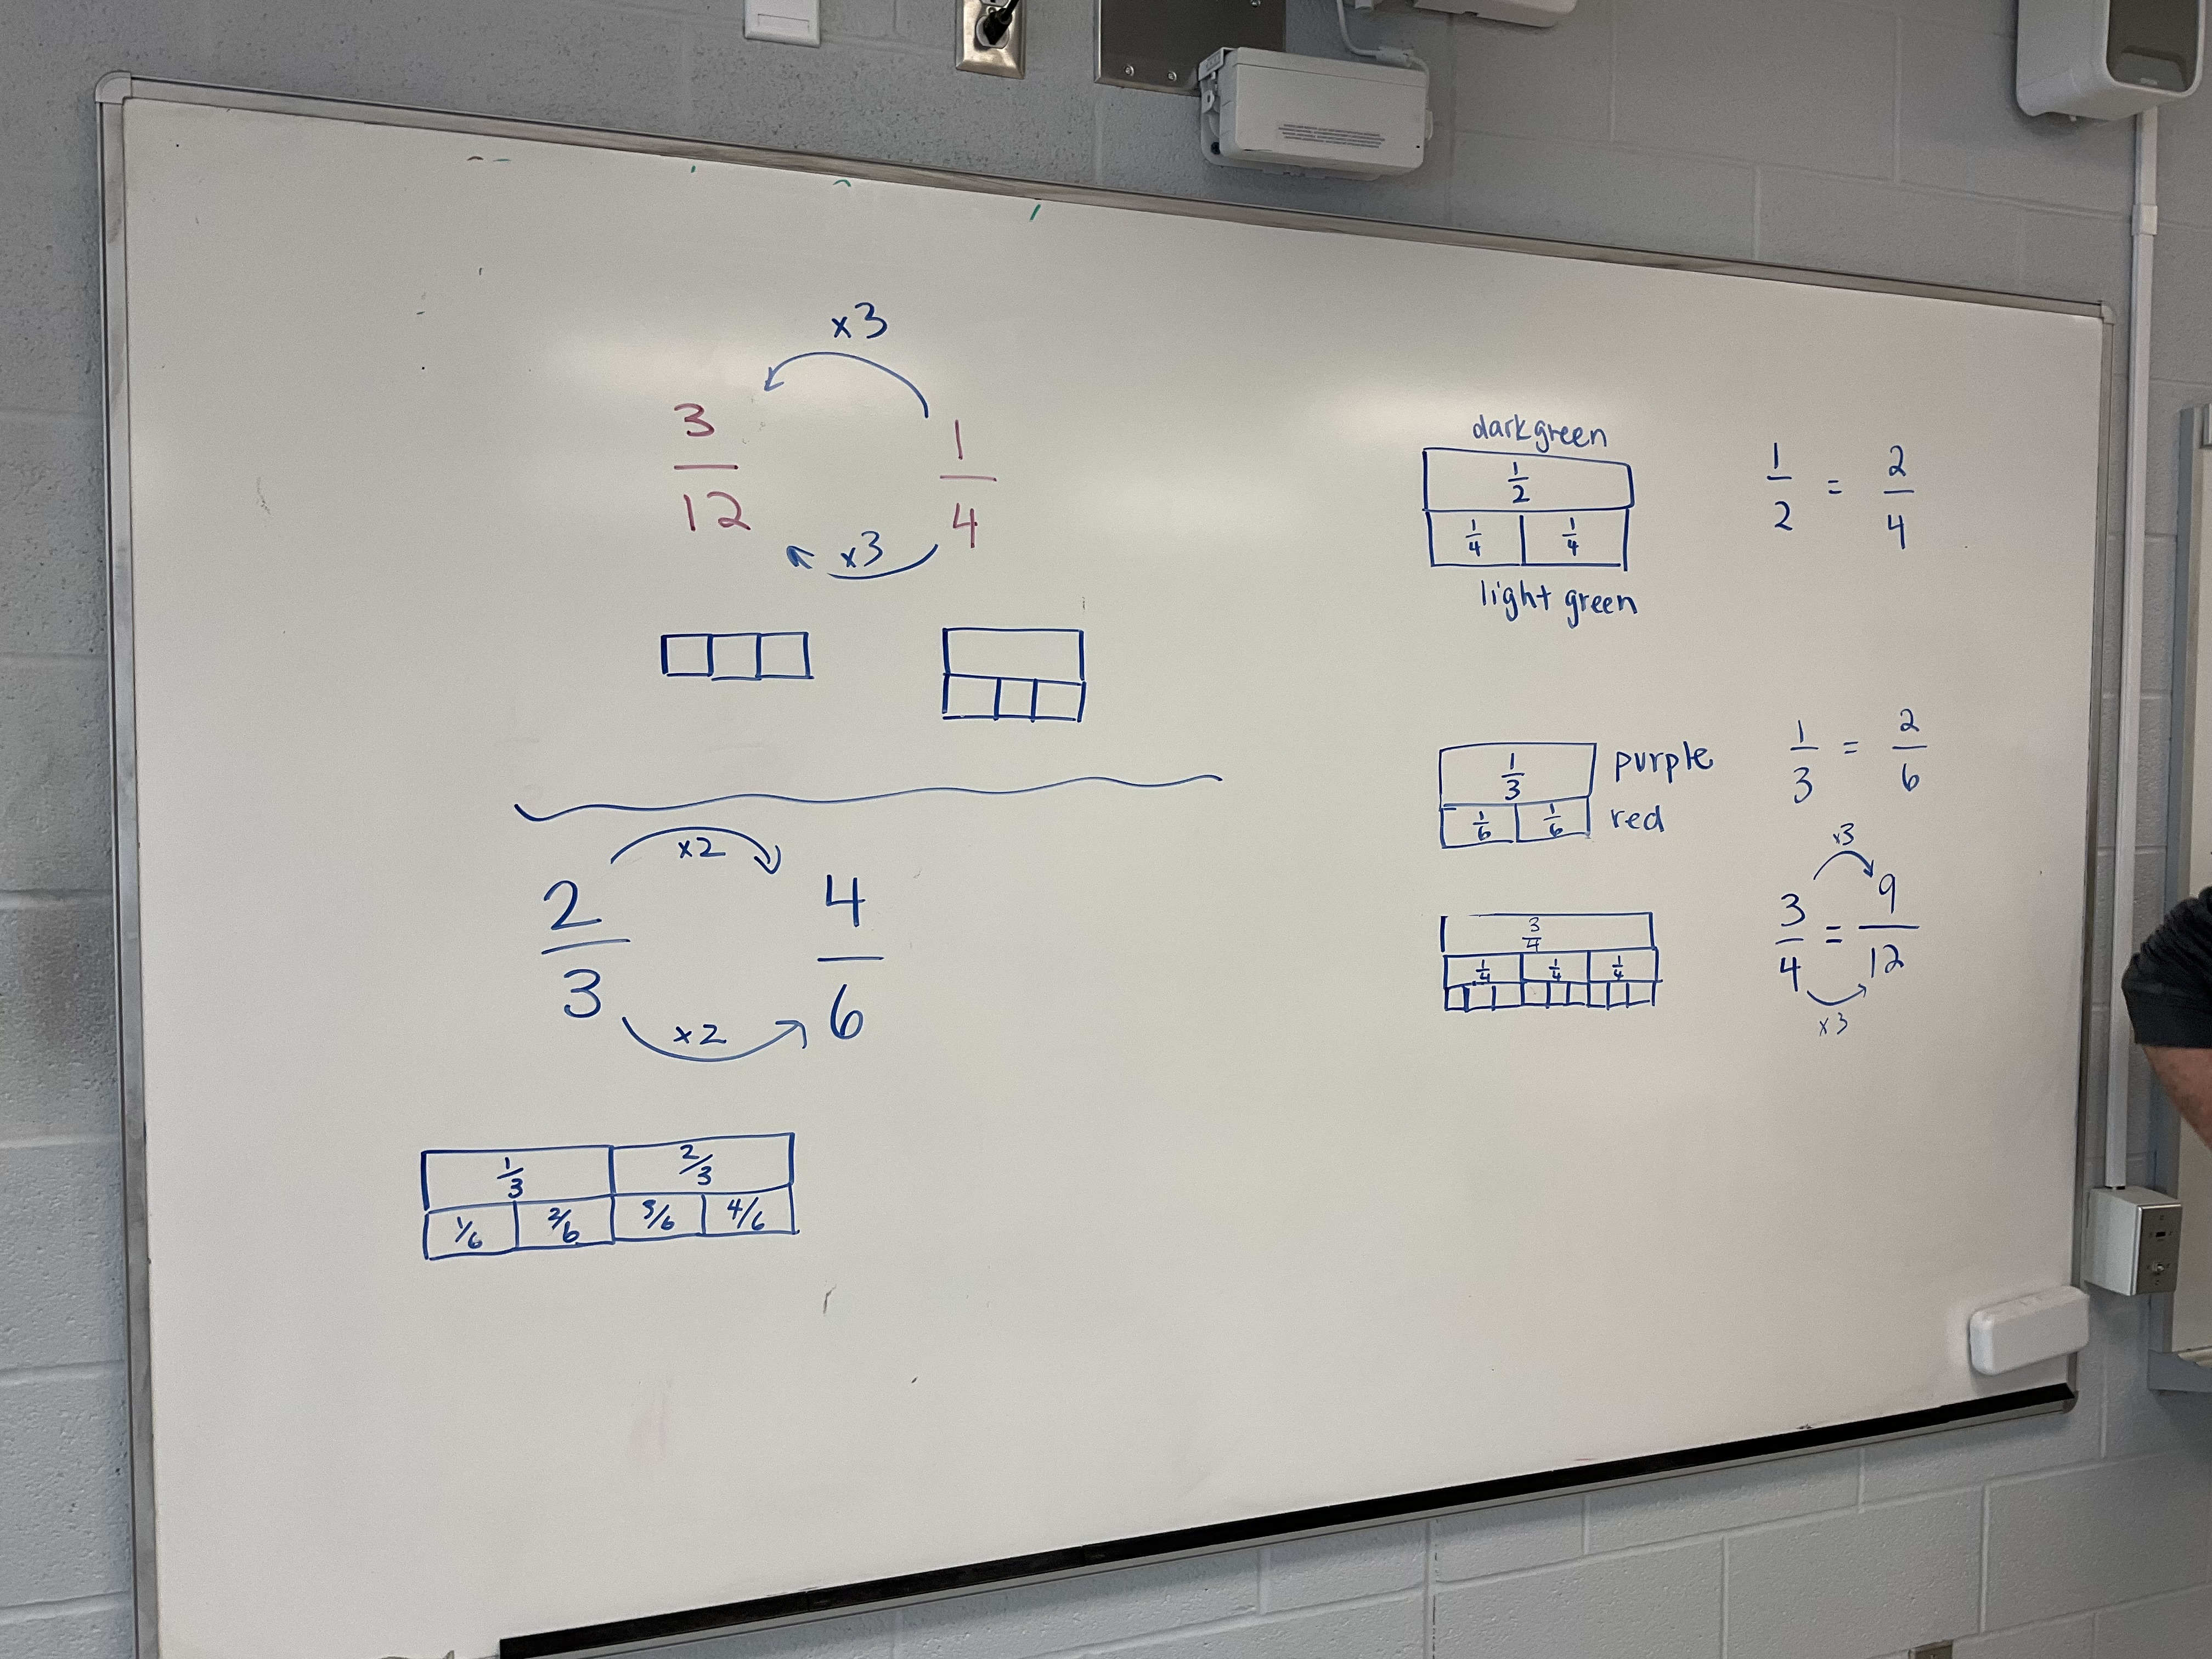 x3
3/12 1/4
x3
x2
2/3 4/6
x2
1/3 2/3
1/6 2/6 3/6 4/6
dark green
1/2
1/4 1/4
light green
1/2 = 2/4
1/3 purple
1/6 1/6 red
1/3 = 2/6
3/4
1/4 1/4 1/4
x3
3/4 = 9/12
x3